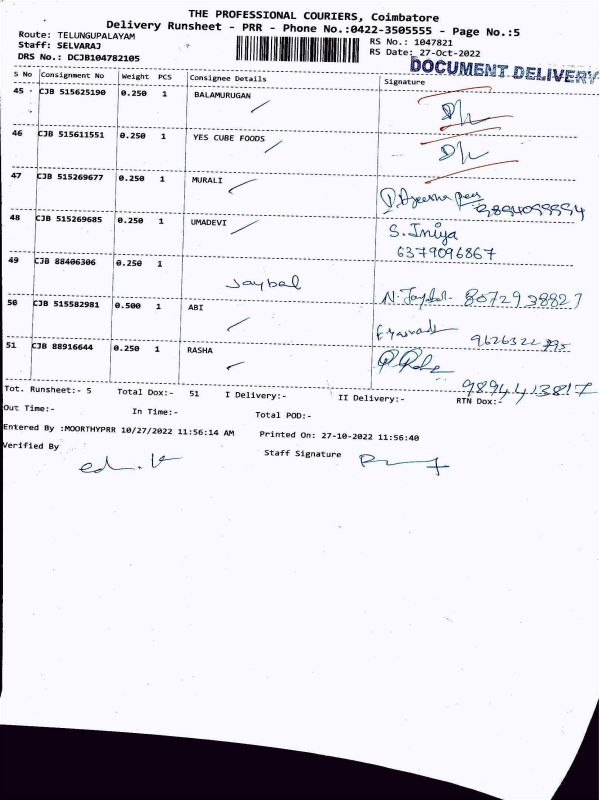 THE PROFESSIONAL COURIERS, Coimbatore
Delivery Runsheet - PRR - Phone No.:0422-3505555 - Page No.:5
Route: TELUNGUPALAYAM
Staff: SELVARAJ
DRS No.: DCJB104782105
RS No.: 1047821
RS Date: 27-Oct-2022
DOCUMENT DELIVERY
S No Consignment No Weight PCS Consignee Details Signature
45 CJB 515625190 0.250 1 BALAMURUGAN
46 CJB 515611551 0.250 1 YES CUBE FOODS
47 CJB 515269677 0.250 1 MURALI
48 CJB 515269685 0.250 1 UMADEVI S. Iniya
6379096867
49 CJB 88406306 0.250 1
Jaybal N. 8072938827
50 CJB 515582981 0.500 1 ABI
51 CJB 88916644 0.250 1 RASHA
9894413817
Tot. Runsheet:- 5 Total Dox:- 51 I Delivery:- II Delivery:- RTN Dox:-
Out Time:- In Time:- Total POD:-
Entered By :MOORTHYPRR 10/27/2022 11:56:14 AM Printed On: 27-10-2022 11:56:40
Verified By Staff Signature